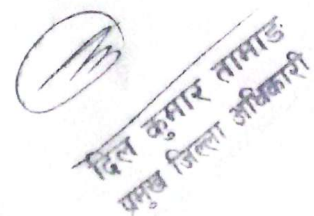 दिल कुमार तामाङ
प्रमुख जिल्ला अधिकारी